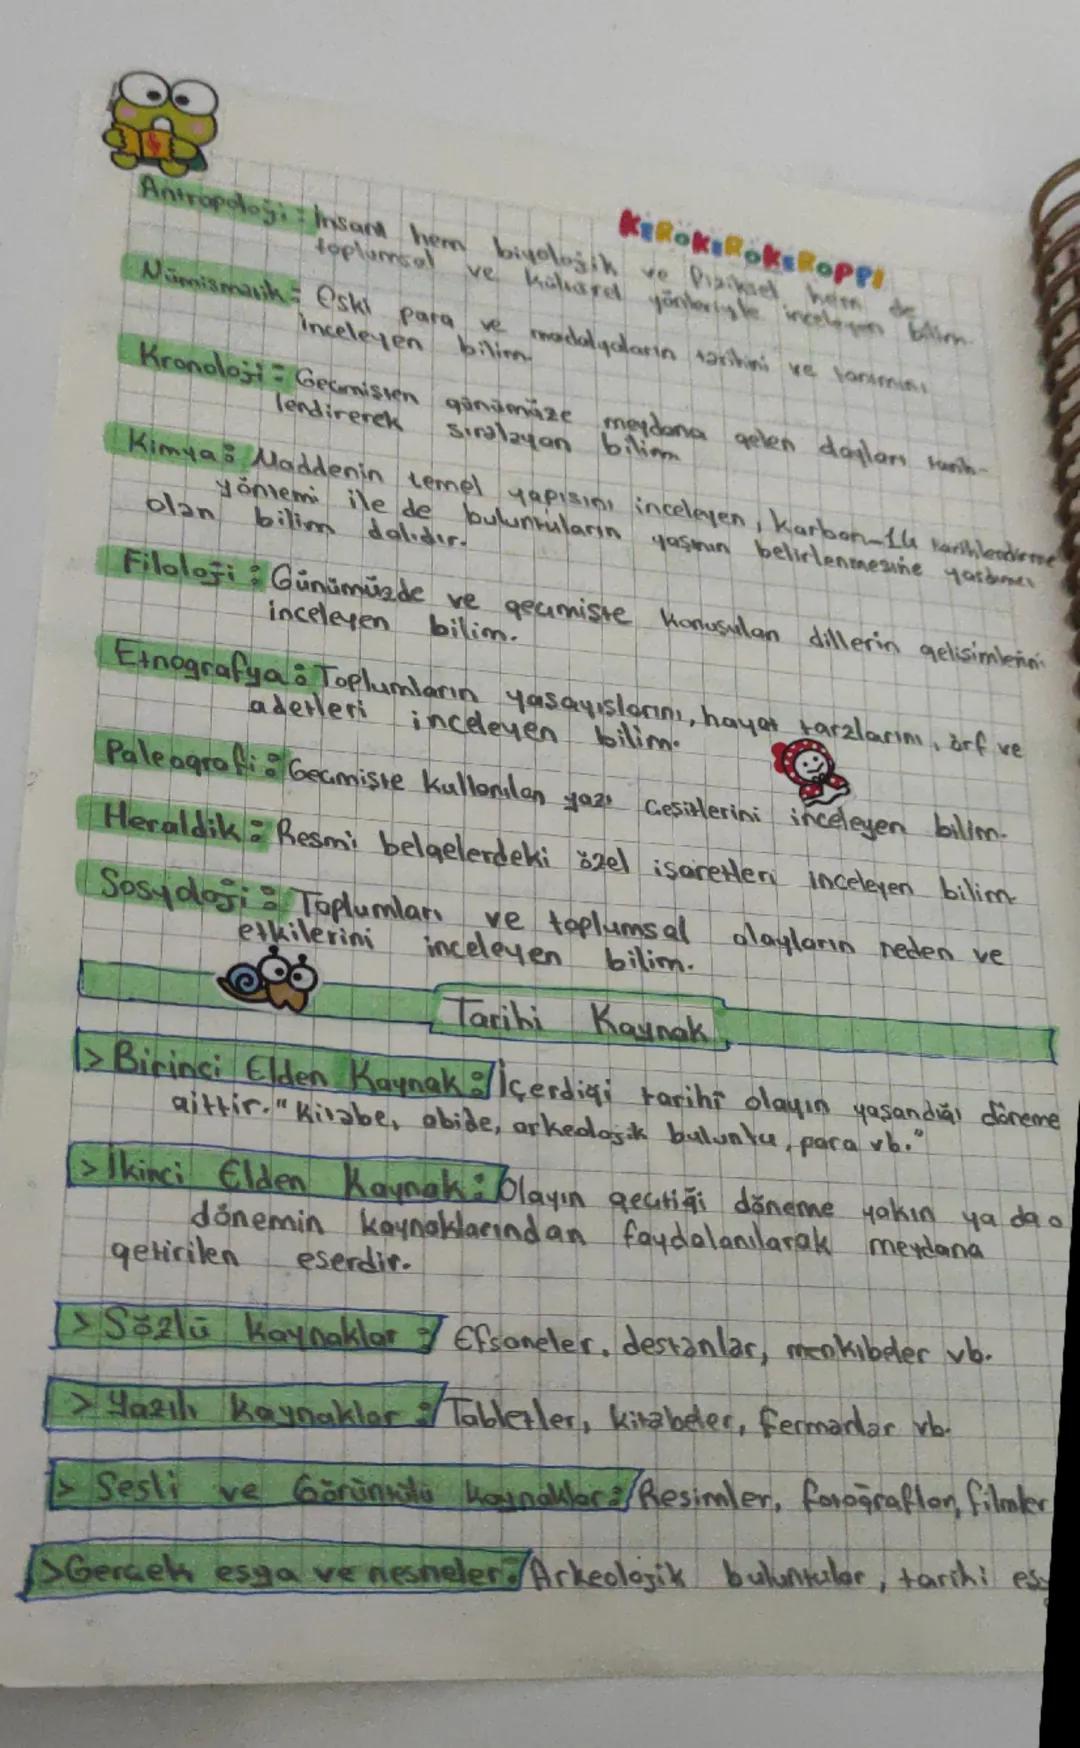 KEROKEROKEROPPI
Antropoloji: İnsanı hem biyolojik ve fiziksel hem de
toplumsal ve kültürel yönleriyle inceleyen bilim.
Nümismatik: Eski para ve madalyaların tarihini ve tanımını
inceleyen bilim.
Kronoloji: Gecmisten günümüze meydana gelen olayları tarih-
lendirerek sıralayan bilim
Kimya: Maddenin temel yapısını inceleyen, Karbon-14 tarihlendirme
yöntemi ile de buluntuların yaşının belirlenmesine yardımcı
olan bilim dalıdır.
Filoloji: Günümüzde ve gecmişte konusulan dillerin gelisimlerini
inceleyen bilim.
Etnografya: Toplumların yasayıslarını, hayat tarzlarını, örf ve
adetleri inceleyen bilim.
Paleografi: Gecmişte kullanılan yazı cesitlerini inceleyen bilim.
Heraldik: Resmi belgelerdeki özel işaretleri inceleyen bilim
Sosyoloji: Toplumları ve toplumsal olayların neden ve
etkilerini inceleyen bilim.
Tarihi Kaynak
> Birinci Elden Kaynak: İçerdiği tarihî olayın yaşandığı döneme
aittir. "Kitabe, abide, arkeolojik buluntu, para vb."
> İkinci Elden Kaynak: Olayın gectiği döneme yakın ya da o
dönemin kaynaklarından faydalanılarak meydana
getirilen eserdir.
> Sözlü kaynaklar: Efsaneler, destanlar, menkıbeler vb.
> Yazılı kaynaklar: Tabletler, kitabeler, fermanlar vb.
> Sesli ve Görüntülü kaynaklar: Resimler, fotoğraflar, filmler
> Gercek esya ve nesneler: Arkeolojik buluntular, tarihi eşy